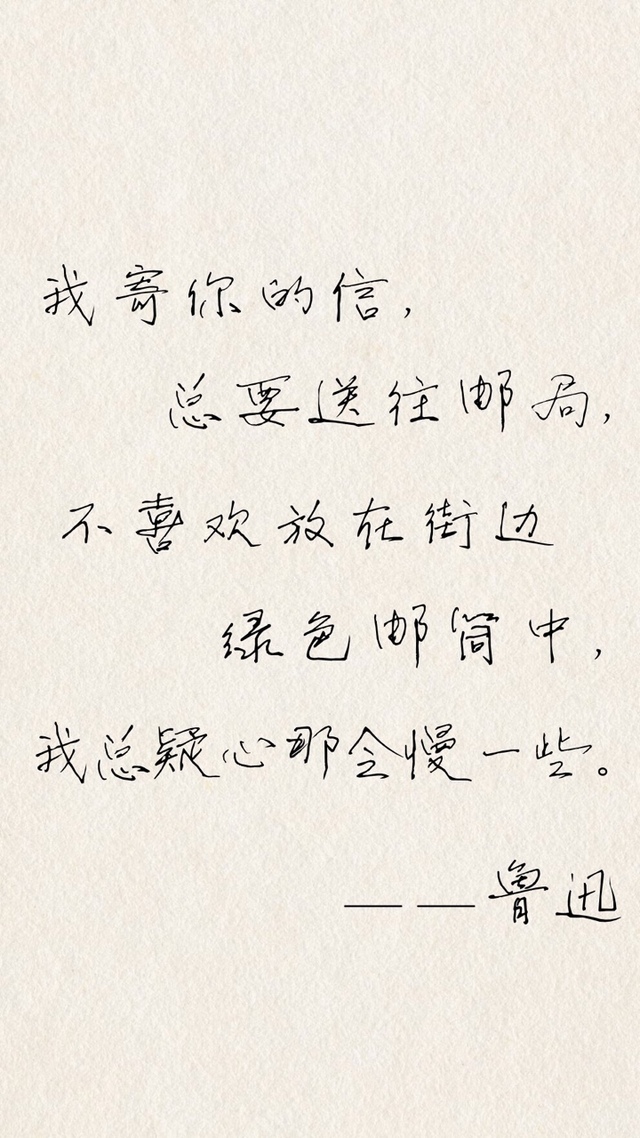 我寄你的信，
总要送往邮局，
不喜欢放在街边
绿色邮筒中，
我总疑心那会慢一些。
——鲁迅